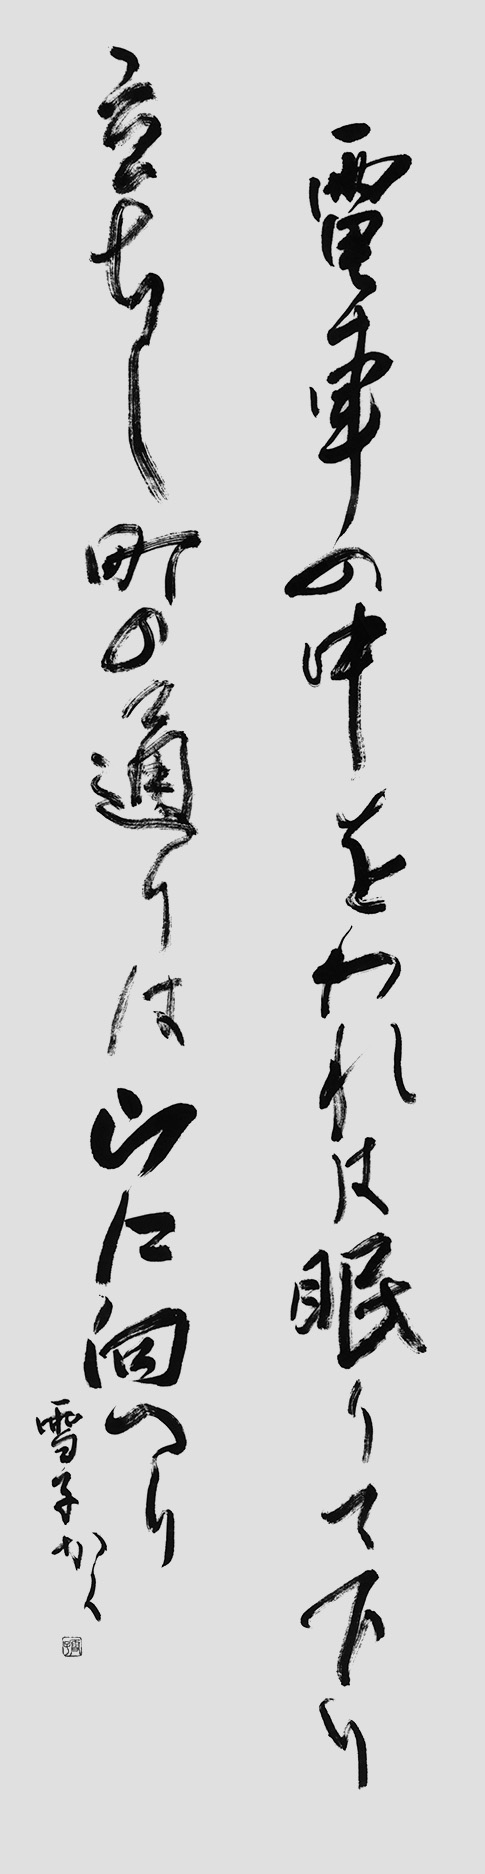 電車の中をわれは眠りて下り
立ちし町の通りは山に向へり
雪子かく